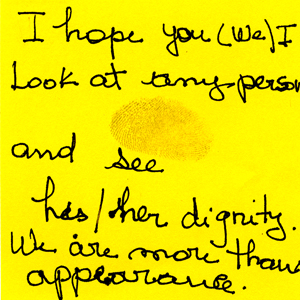 I hope you (We) I
Look at any person
and see
his/her dignity.
We are more than
appearance.